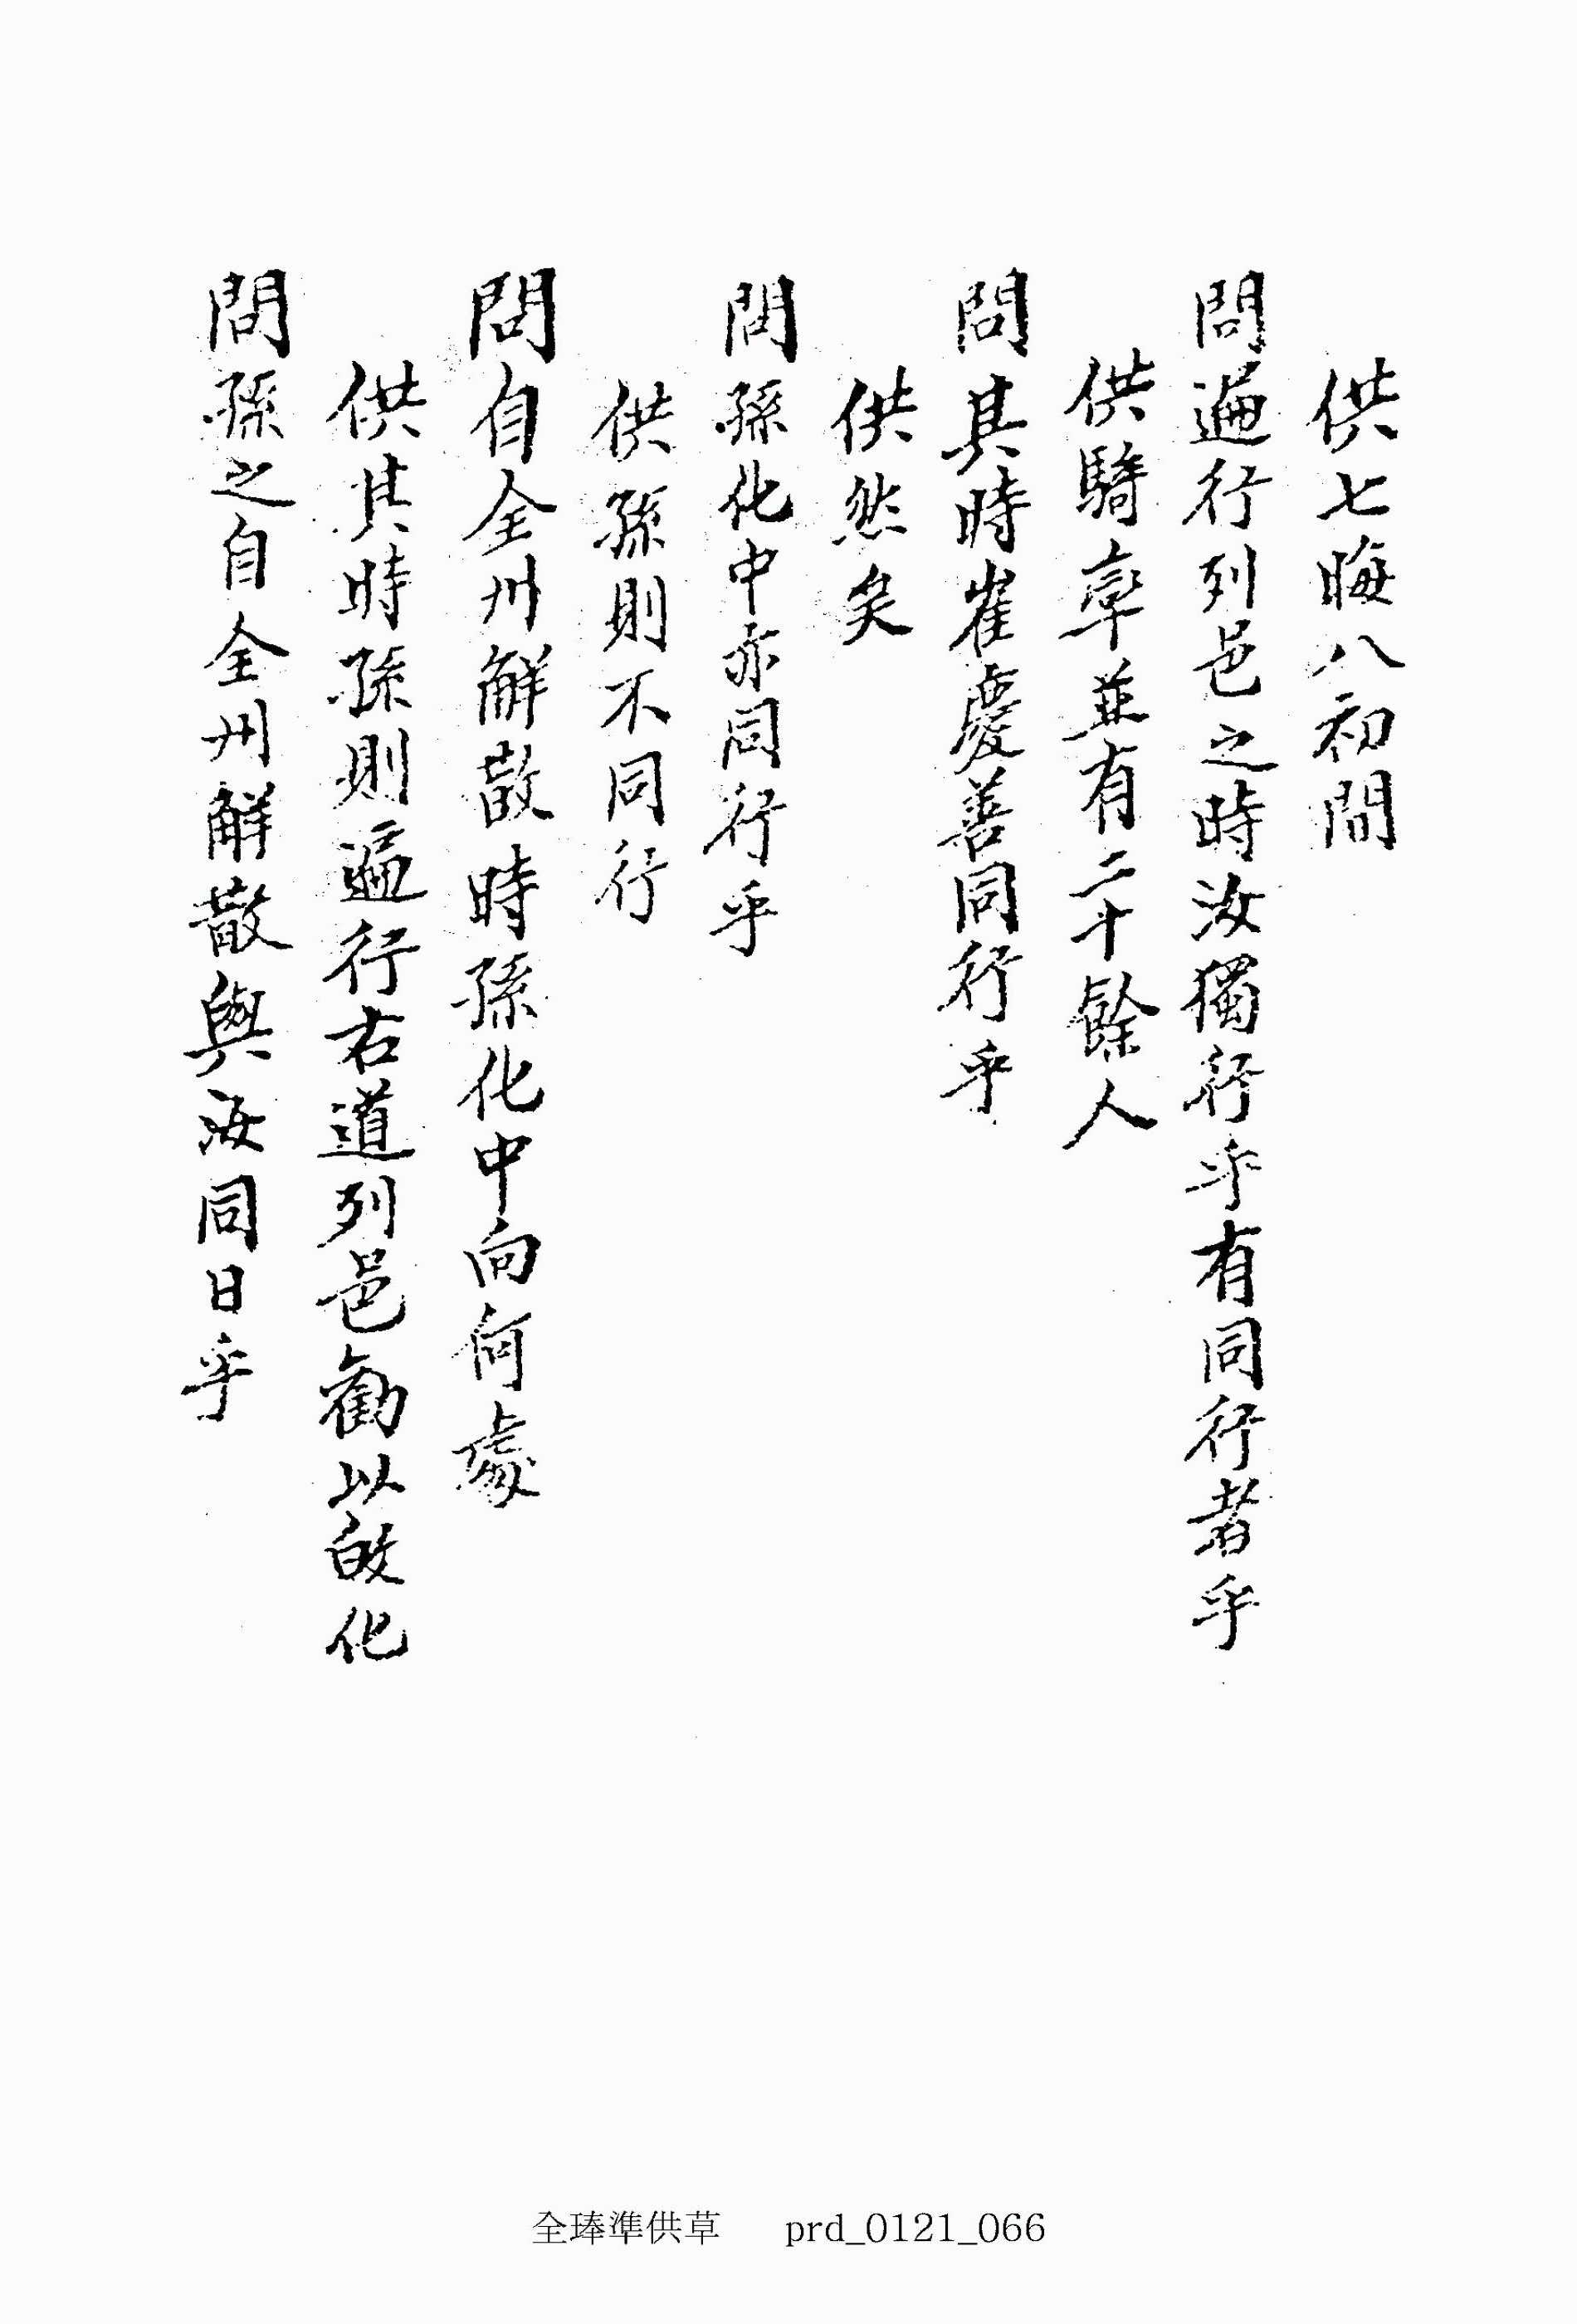 供七晦八初間
問遍行列邑之時汝獨行乎有同行者乎
供騎率並有二十餘人
問其時崔慶善同行乎
供然矣
問孫化中亦同行乎
供孫則不同行
問自全州解散時孫化中向何處
供其時孫則遍行右道列邑勸以皈化
問孫之自全州解散與汝同日乎
全琫準供草 prd_0121_066